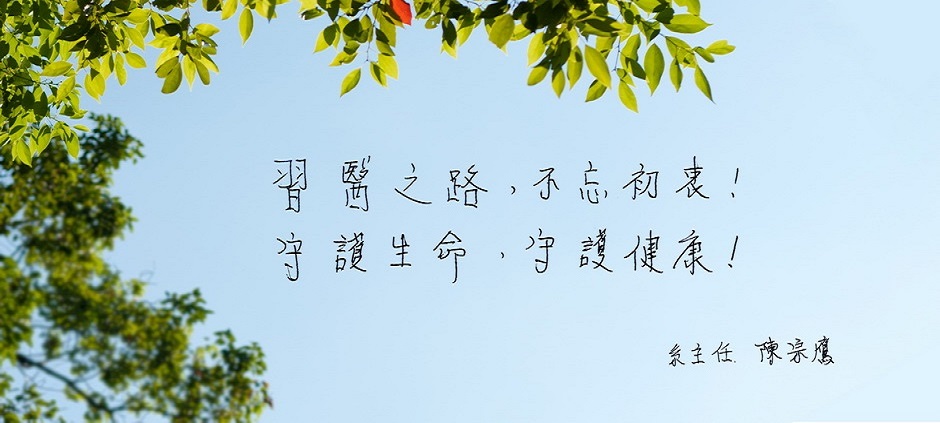 習醫之路,不忘初衷!
守護生命,守護健康!
系主任 陳宗鷹